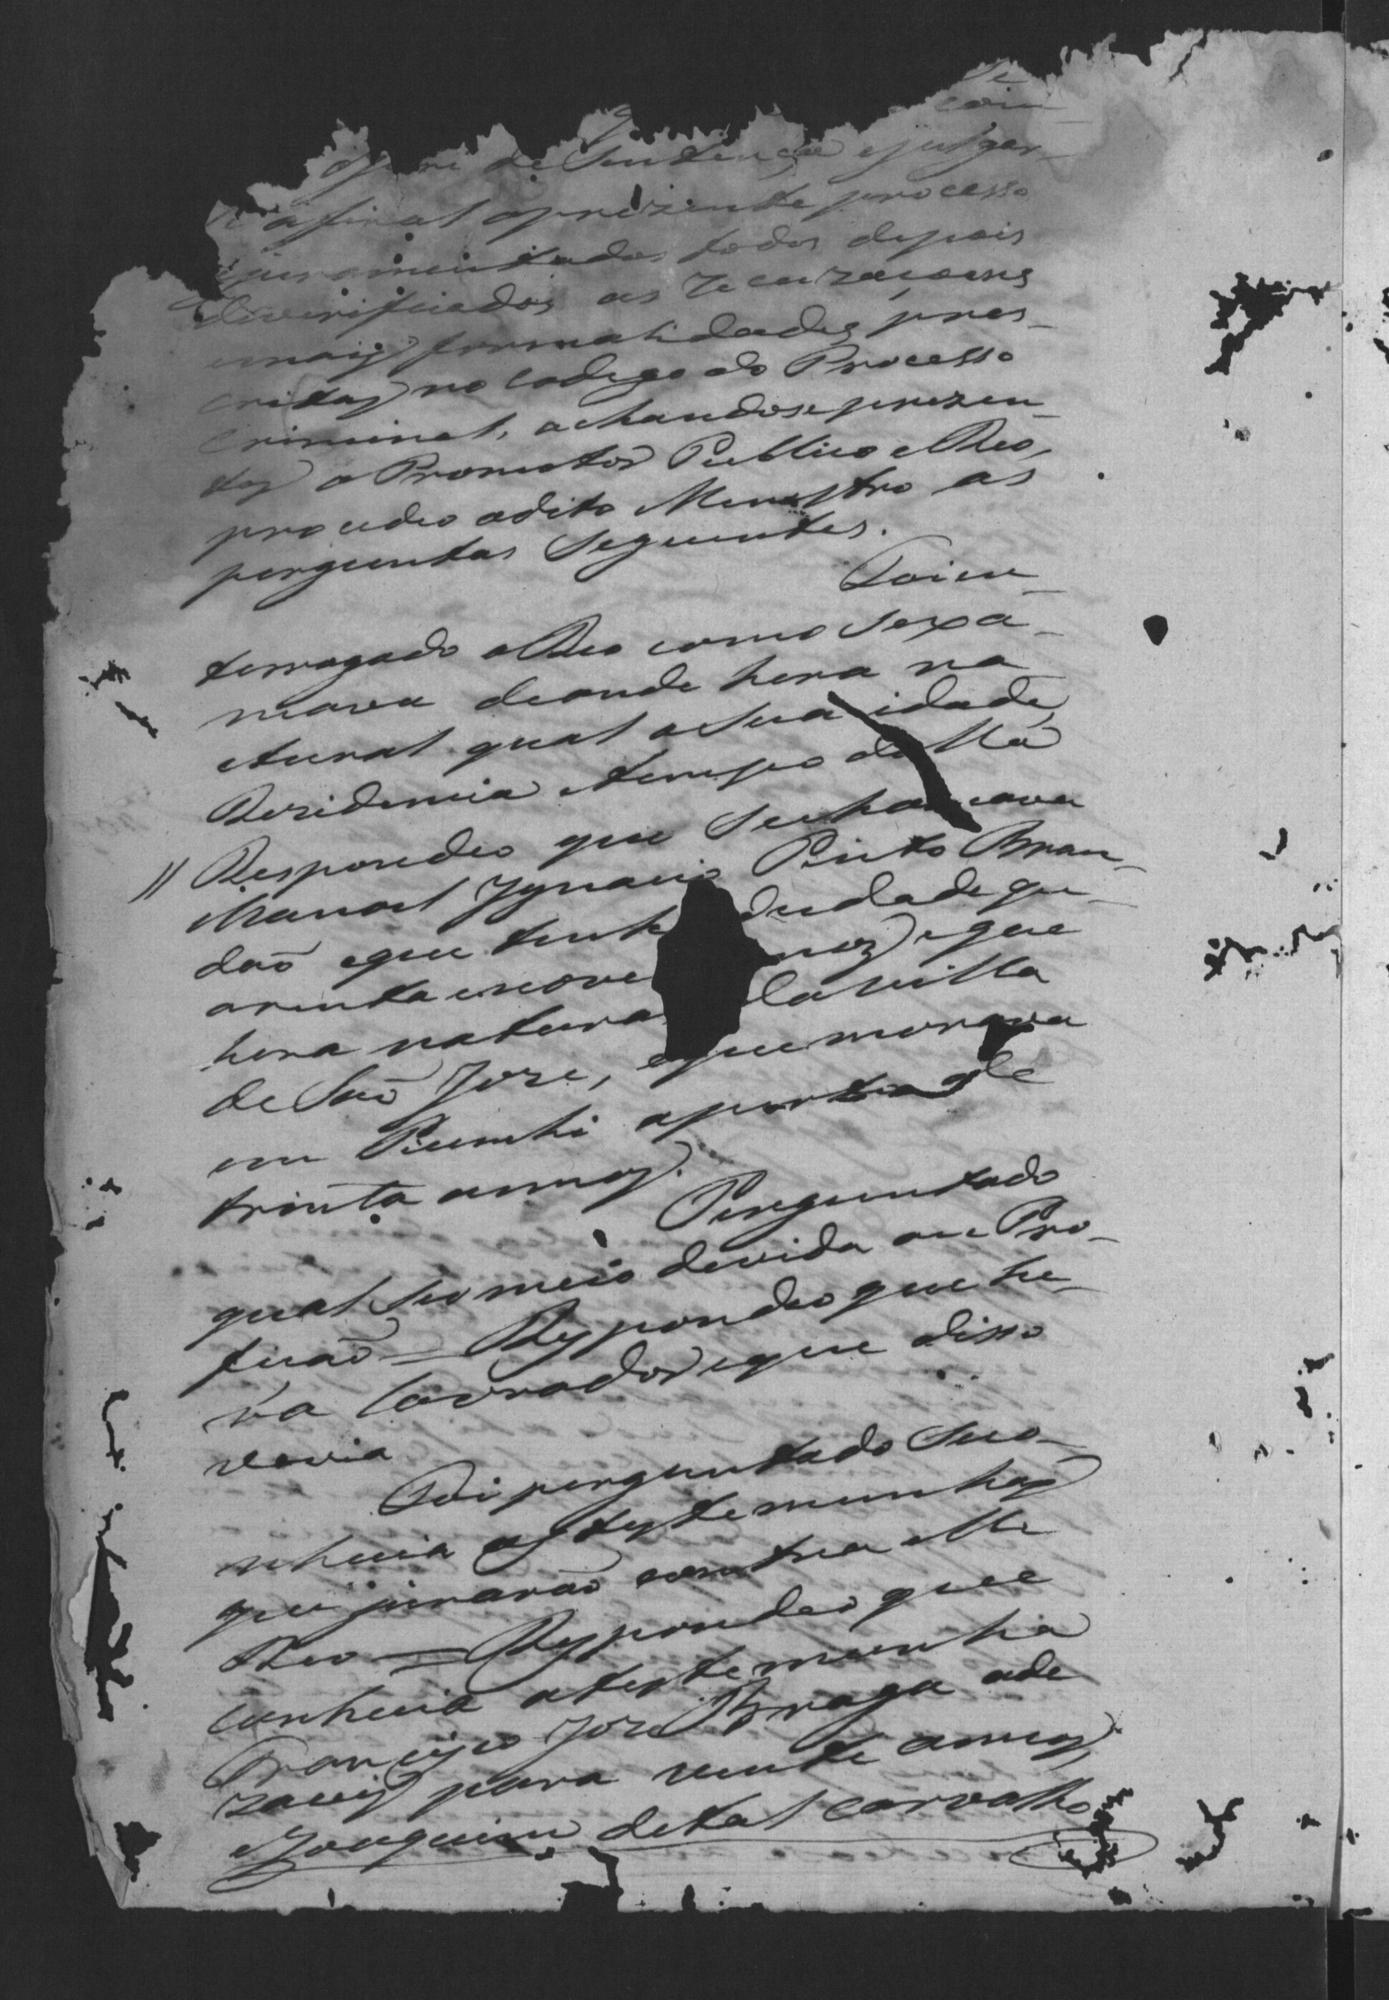 de Sentença ejulgar
afinal oprezente processo
juramentados todos depois
deverificados as recuzaçoens
emais formalidades pres-
critas no Codigo do Processo
Criminal, achandose prezen-
tes o Promotor Publico e Reo,
procedeo odito Menistro as
perguntas Seguintes.
Foi in-
terrogado o Reo como sexa-
mava deonde hera na
tural qual a Sua idade,
Rezidencia etempo della
Respondeo que Sexhamava
Manoel Ygnacio Pinto Bran-
daõ eque tinha dedade qu-
arenta enove annos, eque
hera natural da villa
de Saõ Joze, eque morava
em Piumhi aperto de
trinta annos.
Perguntado
qual seo meio devida ou Pro-
ficaõ = Respondeo que he-
ra Lavrador eque disso
vevia
Foi perguntado Seco-
nhecia as testemunhas
que jurarão contra elle
Reo = Respondeo que
conhecia atestemunha
Francisco Joze Braga ade
zacis para vinte annos,
eJoaquim detal Carvalho